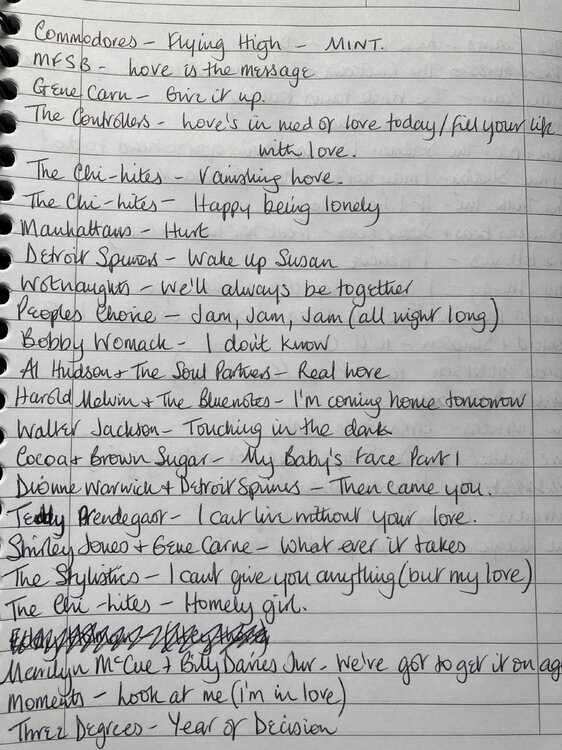 Commodores - Flying High - MINT.
MFSB - Love is the message
Gene Carn - Give it up.
The Controllers - Love's in need of love today/fill your life
with love.
The Chi-lites - Vanishing Love.
The Chi-lites - Happy being lonely
Manhattans - Hurt
Detroit Spinners - Wake up Susan
Wotnaughts - We'll always be together
Peoples Choice - Jam, Jam, Jam (all night long)
Bobby Womack - I don't know
Al Hudson + The Soul Partners - Real Love
Harold Melvin + The Bluenotes - I'm coming home tomorrow
Walter Jackson - Touching in the dark
Cocoa + Brown Sugar - My Baby's Face Part 1
Dionne Warwick + Detroit Spinners - Then came you.
Teddy Prendegast - I can't live without your love.
Shirley Jones + Gene Carne - What ever it takes
The Stylistics - I can't give you anything (but my love)
The Chi-lites - Homely girl.
Marilyn McCue + Billy Davies Jnr - We've got to get it on ag
Moments - Look at me (I'm in love)
Three Degrees - Year of Decision